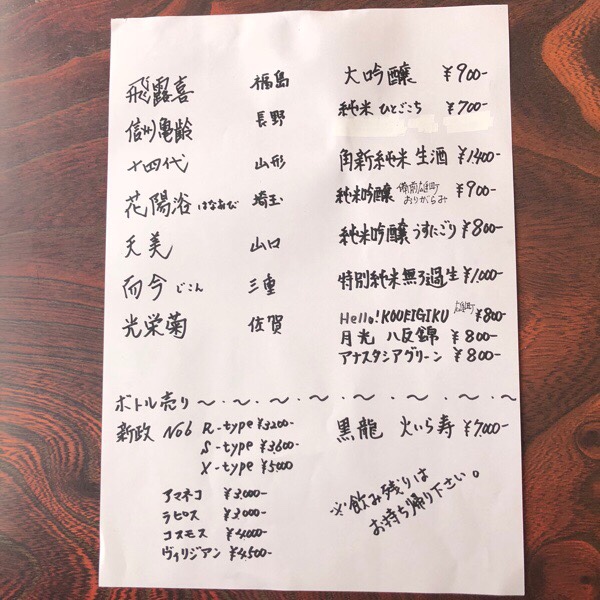 飛露喜 福島 大吟醸 ¥900-
信州亀齢 長野 純米 ひとごこち ¥700-
十四代 山形 角新純米 生酒 ¥1400-
花陽浴 はなあび 埼玉 純米吟醸 備前雄町 おりがらみ ¥900-
天美 山口 純米吟醸 うすにごり ¥800-
而今 じこん 三重 特別純米無ろ過生 ¥1,000-
光栄菊 佐賀 Hello! KOUEIGIKU 雄町 ¥800-
月光 八反錦 ¥800-
アナスタシアグリーン ¥800-
ボトル売り 〜・〜・〜・〜・〜・〜・〜・〜
新政 No6 R-type ¥3200-
S-type ¥3600-
X-type ¥5000
アマネコ ¥3,000-
ラピス ¥3000-
コスモス ¥4000-
ヴィリジアン ¥4,500-
黒龍 火いら寿 ¥7,000-
※飲み残りは
お持ち帰り下さい。